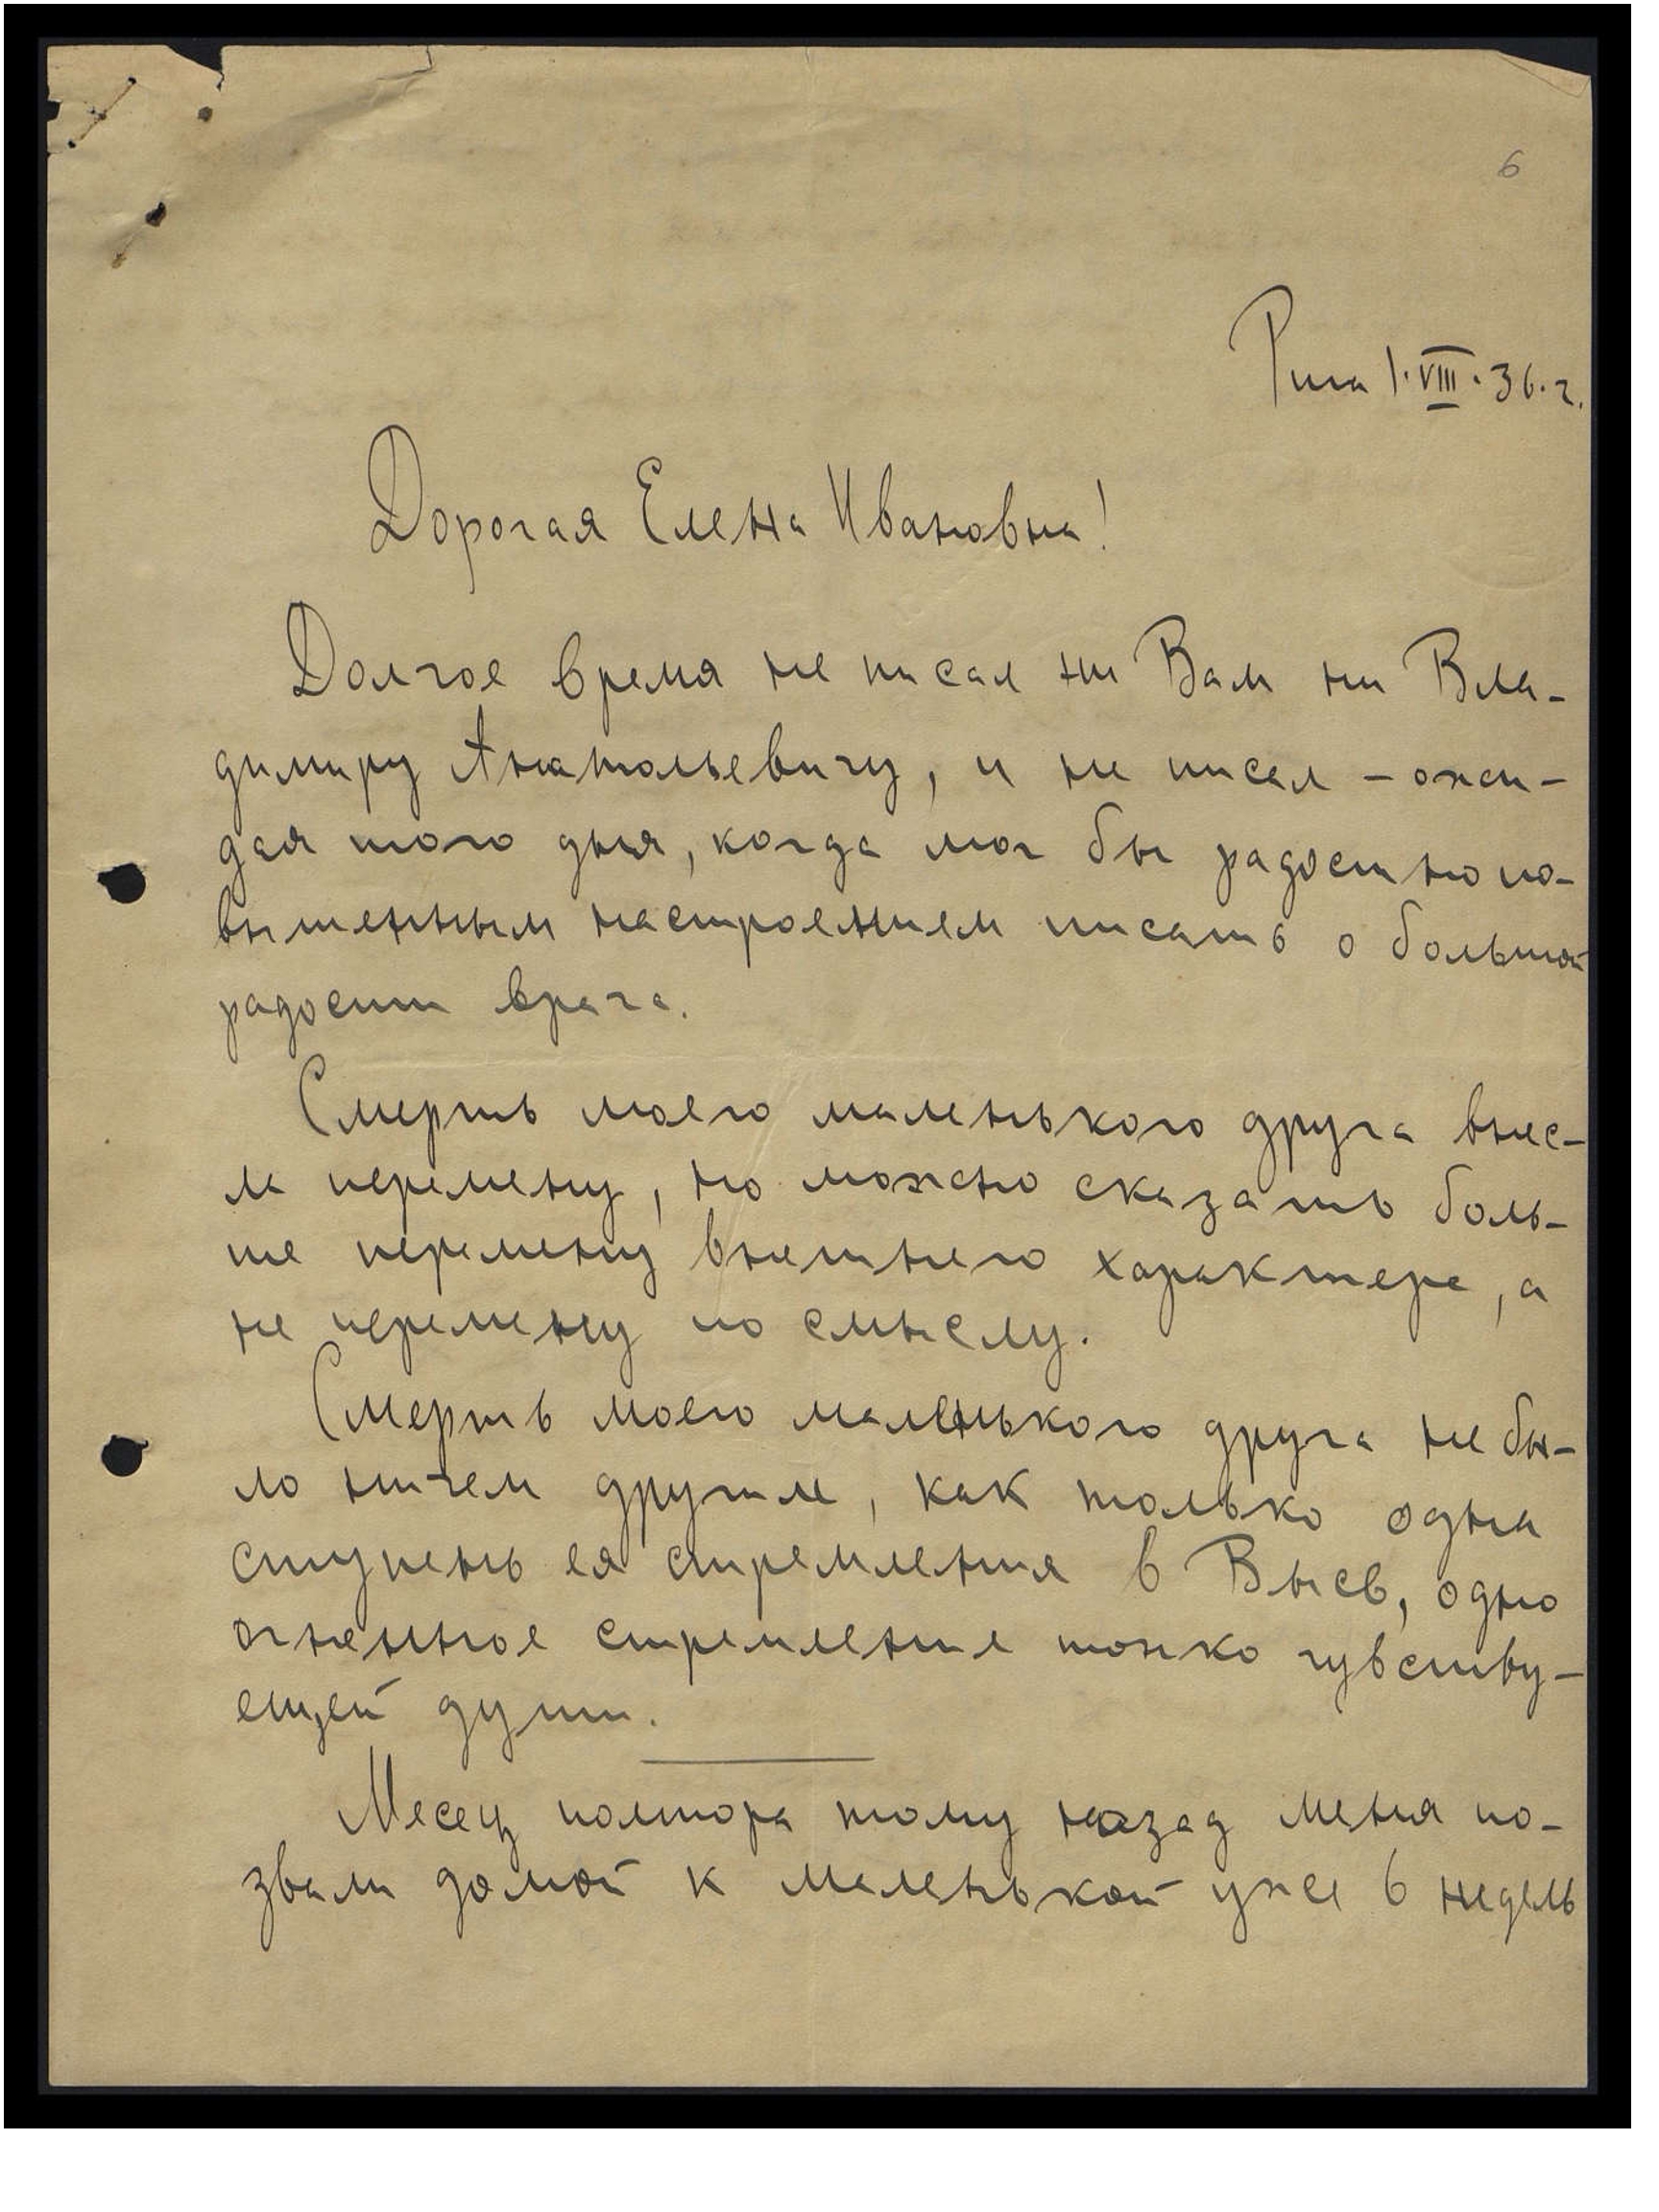 6
Рига 1·VIII·36·г.
Дорогая Елена Ивановна!
Долгое время не писал ни Вам ни Вла-
димиру Анатольевичу, и не писал – ожи-
дая того дня, когда мог бы радостно по-
вышенным настроением писать о большой
радости врача.
Смерть моего маленького друга внес-
ла перемену, но можно сказать боль-
ше перемену внешнего характера, а
не перемену по смыслу.
Смерть моего маленького друга не бы-
ло ничем другим, как только одна
ступень ея стремления в Высь, одно
огненное стремление тонко чувству-
ещей души.
Месец полтора тому назад меня по-
звали домой к маленькой уже 6 недель